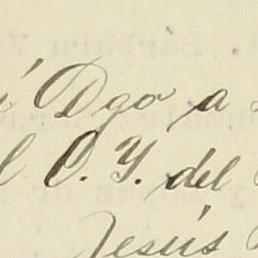 Dgo a
l C. Y. del
Jesús